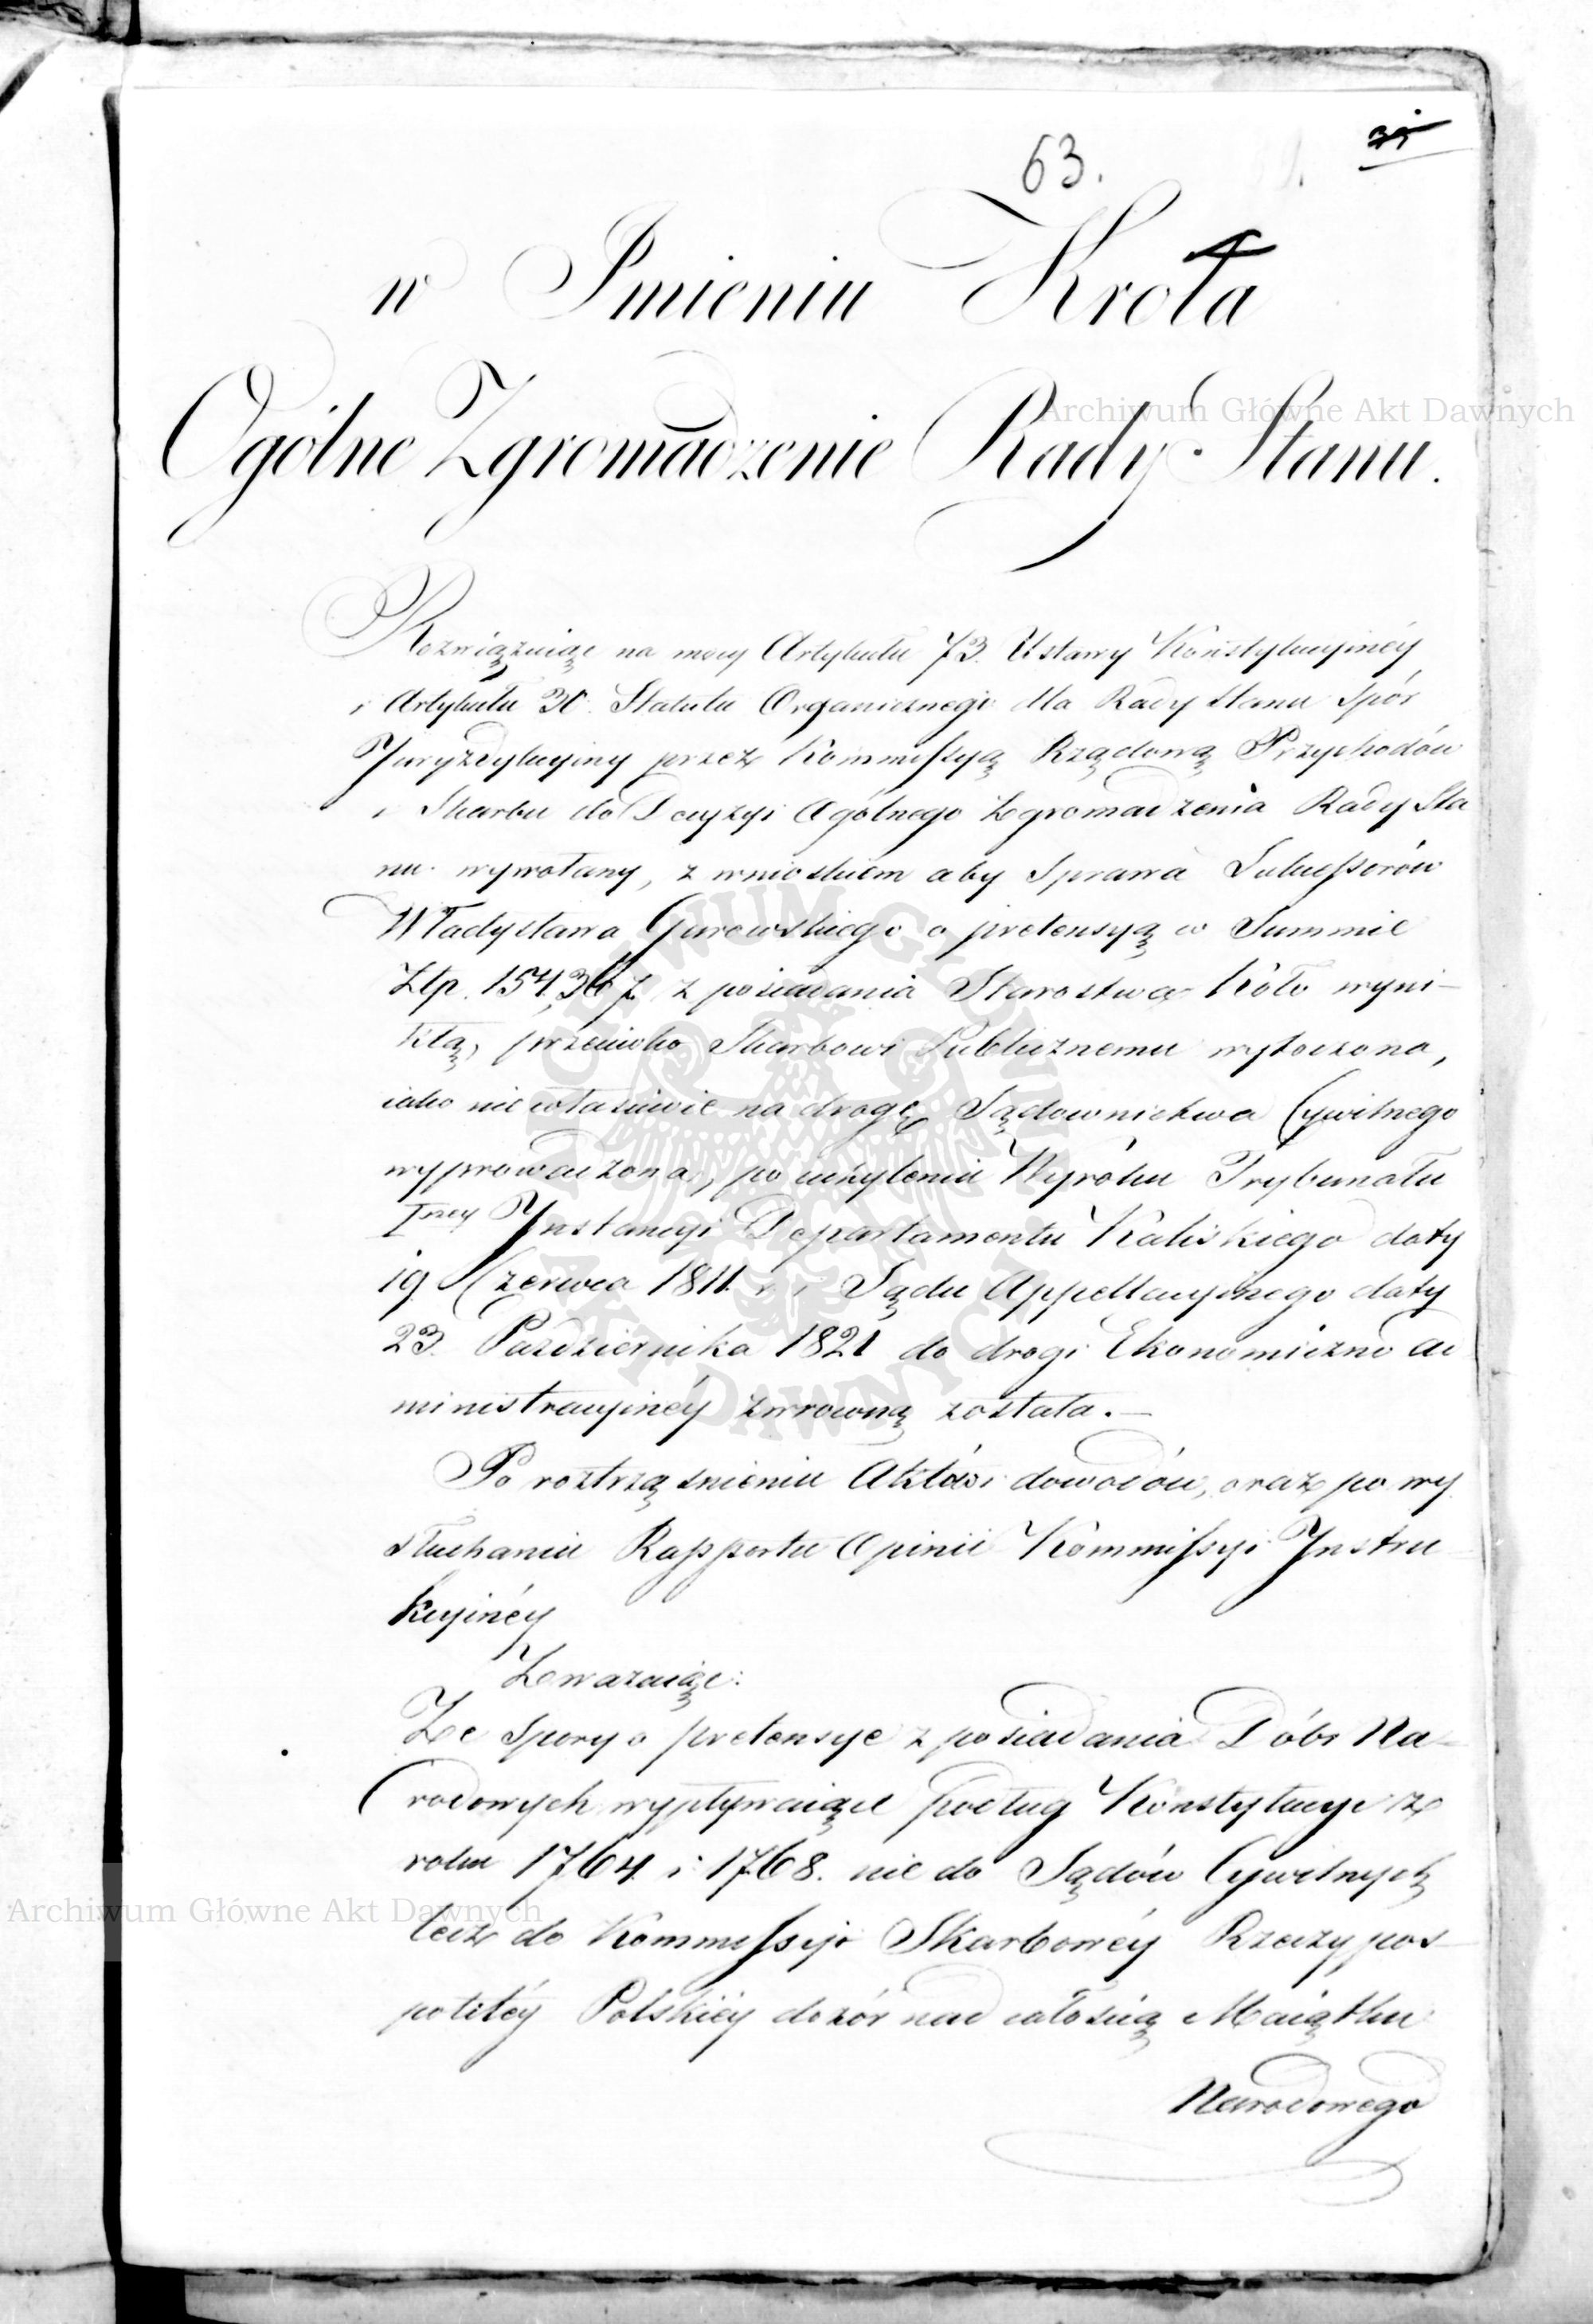 63.
w Imieniu Króla
Ogólne Zgromadzenie Rady Stanu.
Rozwiązuiąc na mocy Artykułu 73. Ustawy Konstytucyinéy
i Artykułu 30. Statutu Organicznego dla Rady Stanu Spór
Juryzdykcyiny przez Kommissyą Rządową Przychodów
i Skarbu do Decyzyi Ogólnego Zgromadzenia Rady Sta
nu wywołany, z wnioskiem aby Sprawa Sukcessorów
Władysława Gurowskiego o pretensyą w Summie
Złp. 154,367 z posiadania Starostwa Koło wyni-
kłą, przeciwko Skarbowi Publicznemu wytoczona,
iako niewłaściwie na drogę Sądownictwa Cywilnego
wyprowadzona, po uchyleniu Wyroku Trybunału
Iwszey Instancyi Departamentu Kaliskiego daty
19 Czerwca 1811 r. i Sądu Appellacyinego daty
23. Października 1821 do drogi Ekonomiczno Ad
ministracyinéy zwróconą została.—
Po roztrząśnieniu Aktów i dowodów, oraz po wy
słuchaniu Rapportu Opinii Kommissyi Instru
kcyinéy
Zważaiąc:
Że Spory o pretensye z posiadania Dóbr Na-
rodowych wypływaiące podług Konstytucyi z
roku 1764. i 1768. nie do Sądów Cywilnych
lecz do Kommissyi Skarbowéy Rzeczypos-
politéy Polskiéy dozór nad całością Maiątku
Narodowego
Archiwum Główne Akt Dawnych
Archiwum Główne Akt Dawnych
ARCHIWUM GŁÓWNE AKT DAWNYCH